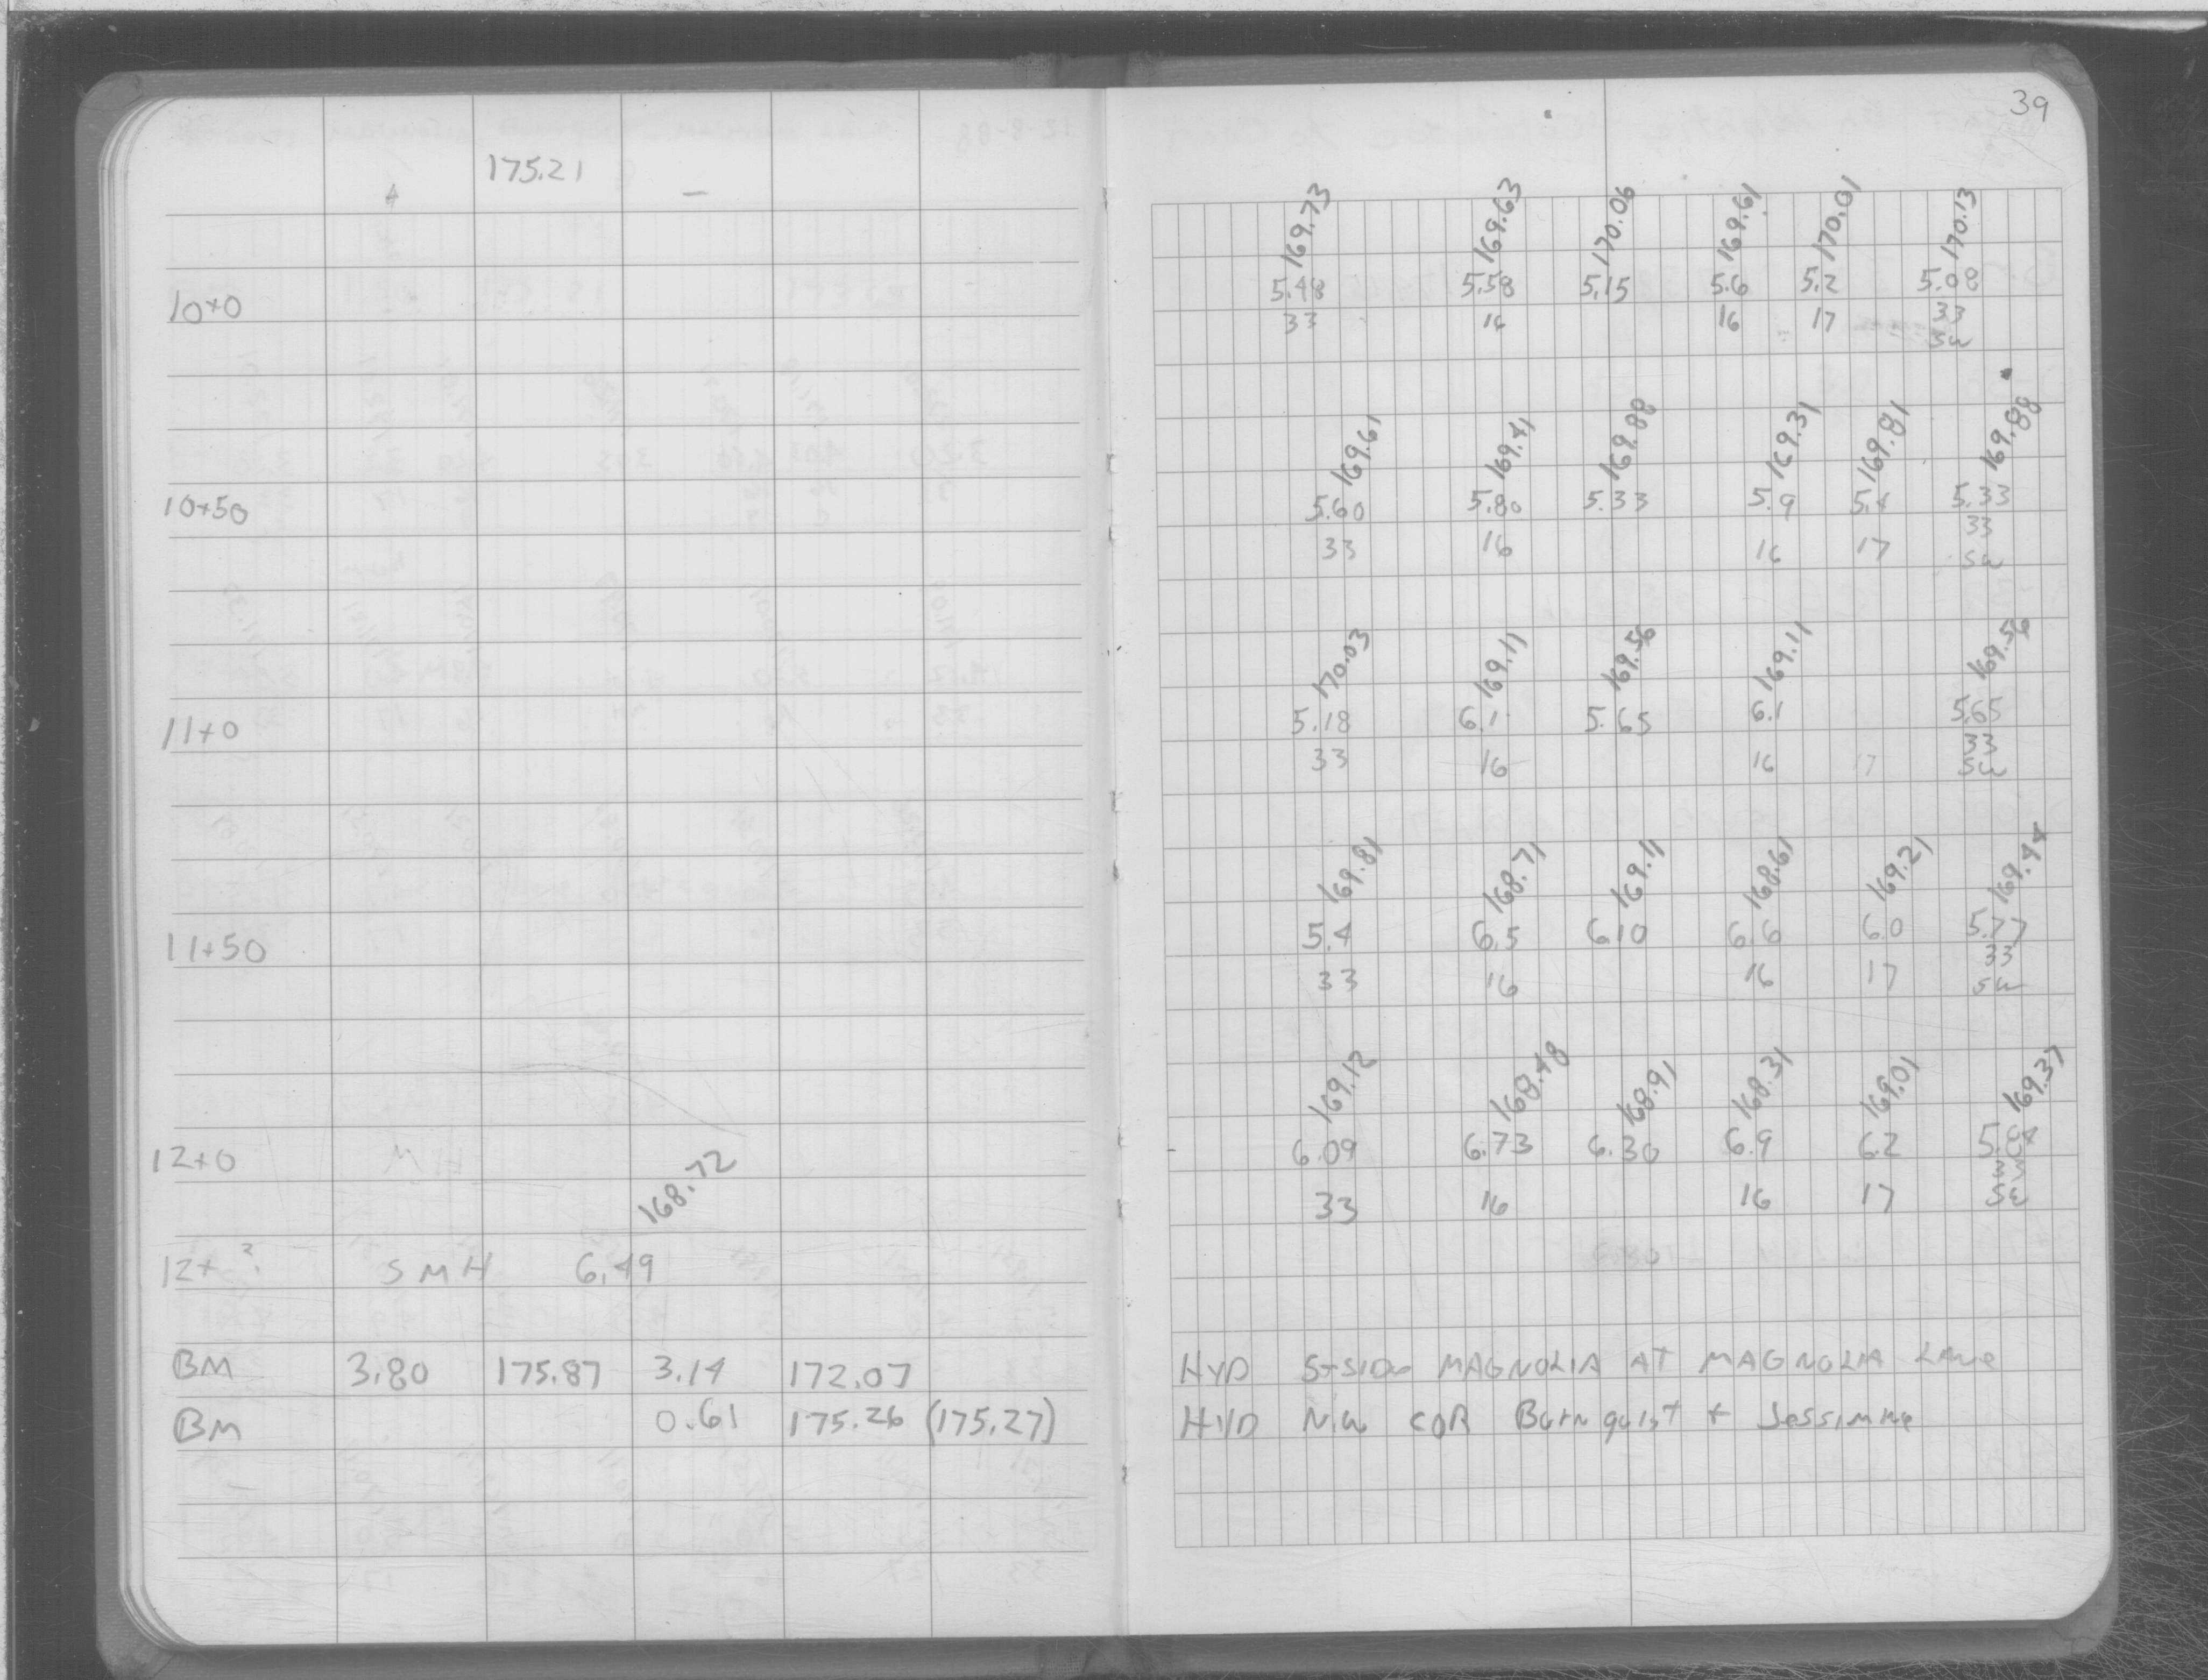 39
175.21
+ -
169.73 169.63 170.06 169.61 170.01 170.13
10+0 5.48 5.58 5.15 5.6 5.2 5.08
33 16 16 17 33
SW
169.61 169.41 169.88 169.31 169.81 169.88
10+50 5.60 5.80 5.33 5.9 5.4 5.33
33 16 16 17 33
SW
170.03 169.11 169.56 169.11 169.56
11+0 5.18 6.1 5.65 6.1 5.65
33 16 16 17 33
SW
169.81 168.71 169.11 168.61 169.21 169.44
11+50 5.4 6.5 6.10 6.6 6.0 5.77
33 16 16 17 33
SW
169.12 168.48 168.91 168.31 169.01 169.37
12+0 6.09 6.73 6.30 6.9 6.2 5.84
33 16 16 17 33
SW
168.72
12+ ? SMH 6.49
BM 3.80 175.87 3.14 172.07 HYD S-SIDE MAGNOLIA AT MAGNOLIA LANE
BM 0.61 175.26 (175.27) HYD N.W COR Burnquist + Jessimine